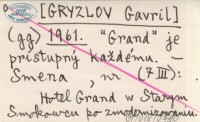 [GRYZLOV Gavril]
(gg) 1961. "Grand" je
prístupný každému. –
Smena, nr (7 III):
Hotel Grand w Starym
Smokowcu po zmodernizowaniu